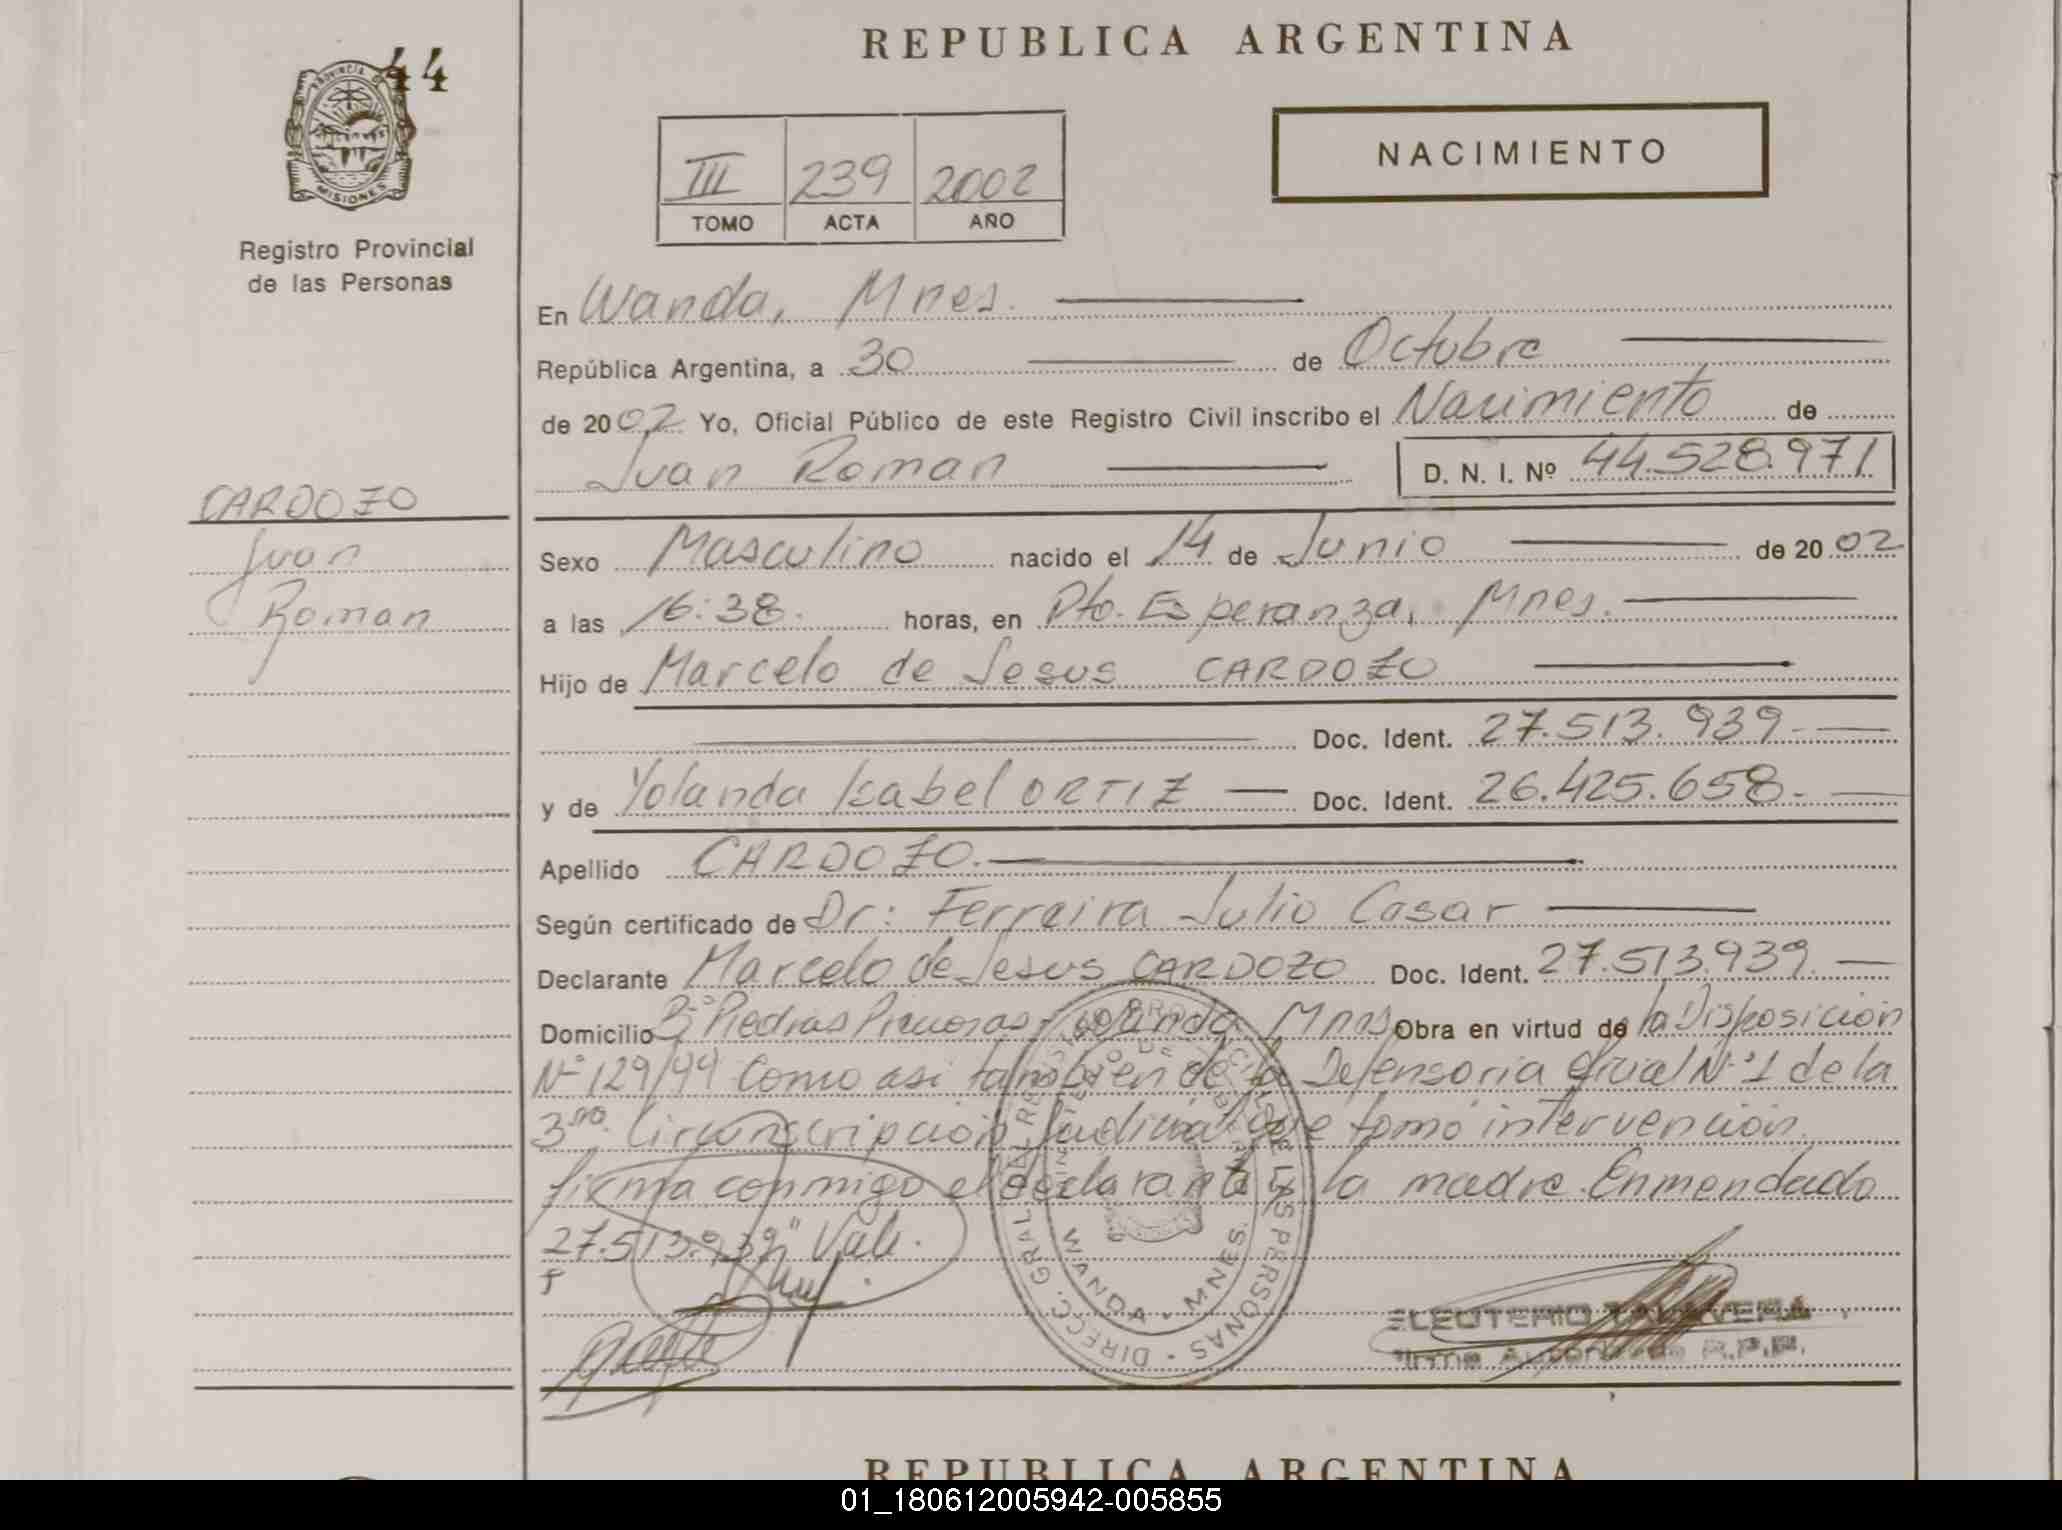 44
PROVINCIA DE
MISIONES
Registro Provincial
de las Personas
REPUBLICA ARGENTINA
III 239 2002
TOMO ACTA AÑO
NACIMIENTO
En Wanda, Mnes.
República Argentina, a 30 de Octubre
de 2002 Yo, Oficial Público de este Registro Civil inscribo el Nacimiento de
Juan Roman D. N. I. Nº 44.528.971
CARDOZO
Juan
Roman
Sexo Masculino nacido el 14 de Junio de 2002
a las 16:38. horas, en Pto. Esperanza, Mnes.
Hijo de Marcelo de Jesus CARDOZO
Doc. Ident. 27.513.939-
y de Yolanda Isabel ORTIZ Doc. Ident. 26.425.658-
Apellido CARDOZO.
Según certificado de Dr: Ferreira Julio Cesar
Declarante Marcelo de Jesus CARDOZO Doc. Ident. 27.513.939.
Domicilio Bº Piedras Preciosas, Wanda Mnes Obra en virtud de la Disposición
Nº 129/99 Como asi tambien de la Defensoria Oficial Nº 1 de la
3ra. Circunscripción Judicial que tomó intervención.
firma conmigo el declarante y la madre. Enmendado
"27.513.939" Vale.
DIRECC. GRAL. DEL REGISTRO PROVINCIAL DE LAS PERSONAS
WANDA - MNES.
ELEUTERIO TALAVERA
Firma Autorizada R.P.P.
REPUBLICA ARGENTINA
01_180612005942-005855